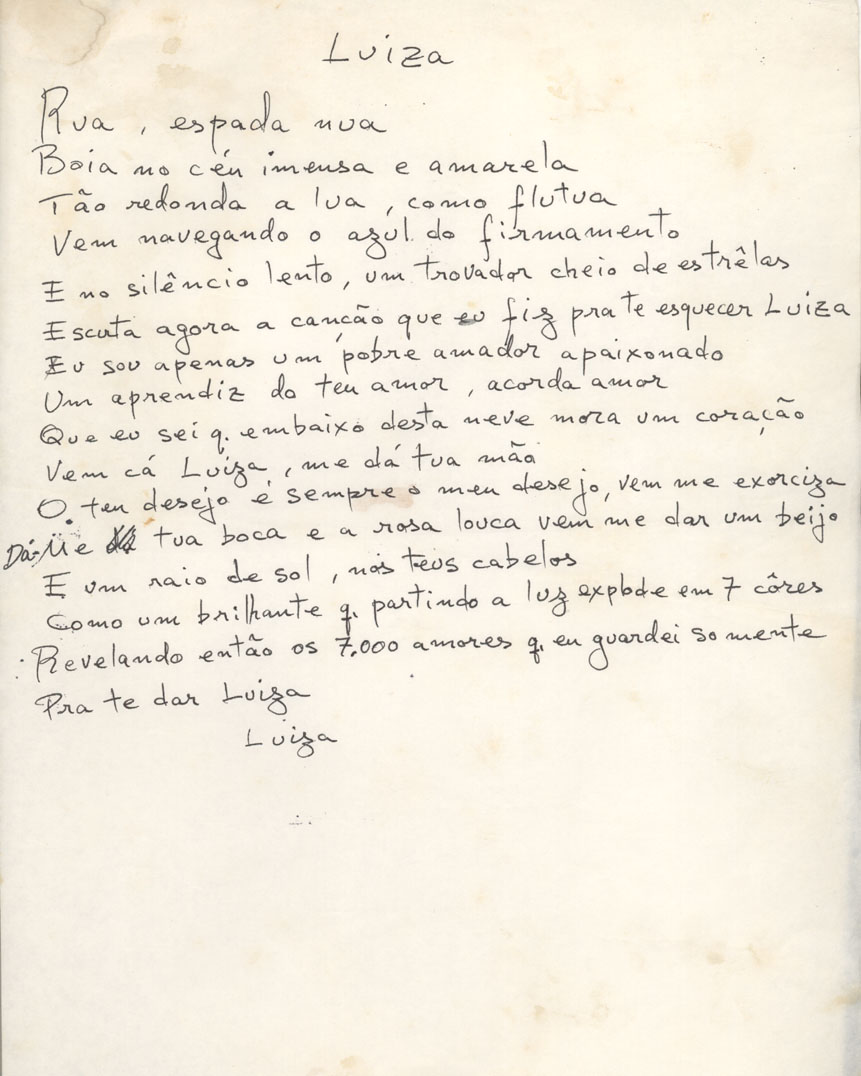 Luiza
Rua, espada nua
Boia no céu imensa e amarela
Tão redonda a lua, como flutua
Vem navegando o azul do firmamento
E no silêncio lento, um trovador cheio de estrêlas
Escuta agora a canção que eu fiz pra te esquecer Luiza
Eu sou apenas um pobre amador apaixonado
Um aprendiz do teu amor, acorda amor
Que eu sei q. embaixo desta neve mora um coração
Vem cá Luiza, me dá tua mão
O teu desejo é sempre o meu desejo, vem me exorciza
Dá-Me tua boca e a rosa louca vem me dar um beijo
E um raio de sol, nos teus cabelos
Como um brilhante q. partindo a luz explode em 7 côres
Revelando então os 7.000 amores q. eu guardei somente
Pra te dar Luiza
Luiza